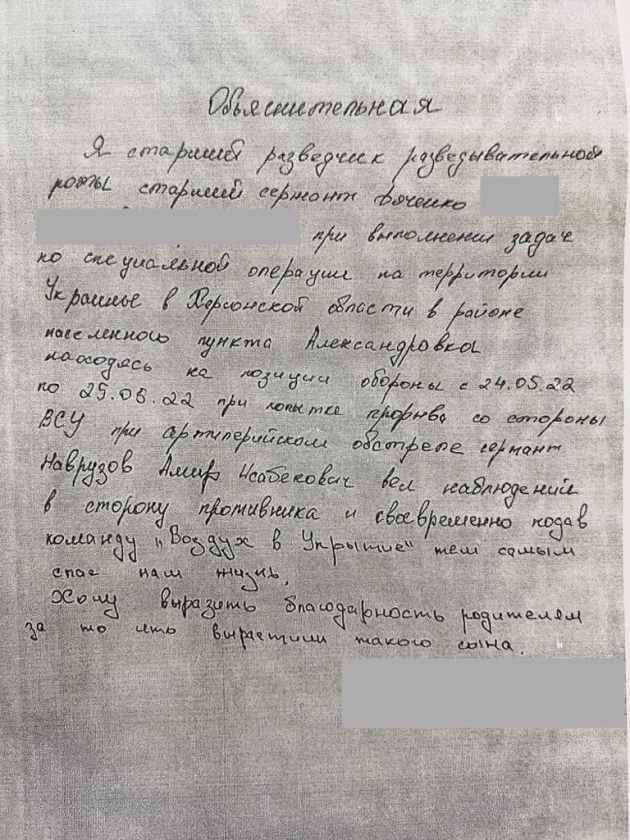 Объяснительная
Я старший разведчик разведывательной
роты старший сержант Дяченко
при выполнении задач
по специальной операции на территории
Украине в Херсонской области в районе
населенного пункта Александровка
находясь на позиции обороны с 24.05.22
по 25.05.22 при попытке прорыва со стороны
ВСУ при артилерийском обстреле сержант
Наврузов Амир Исабекович вел наблюдений
в сторону противника и своевременно подав
команду "Воздух в Укрытие" тем самым
спас наш жизнь.
Хочу выразить благодарность родителем
за то что вырастили такого сына.